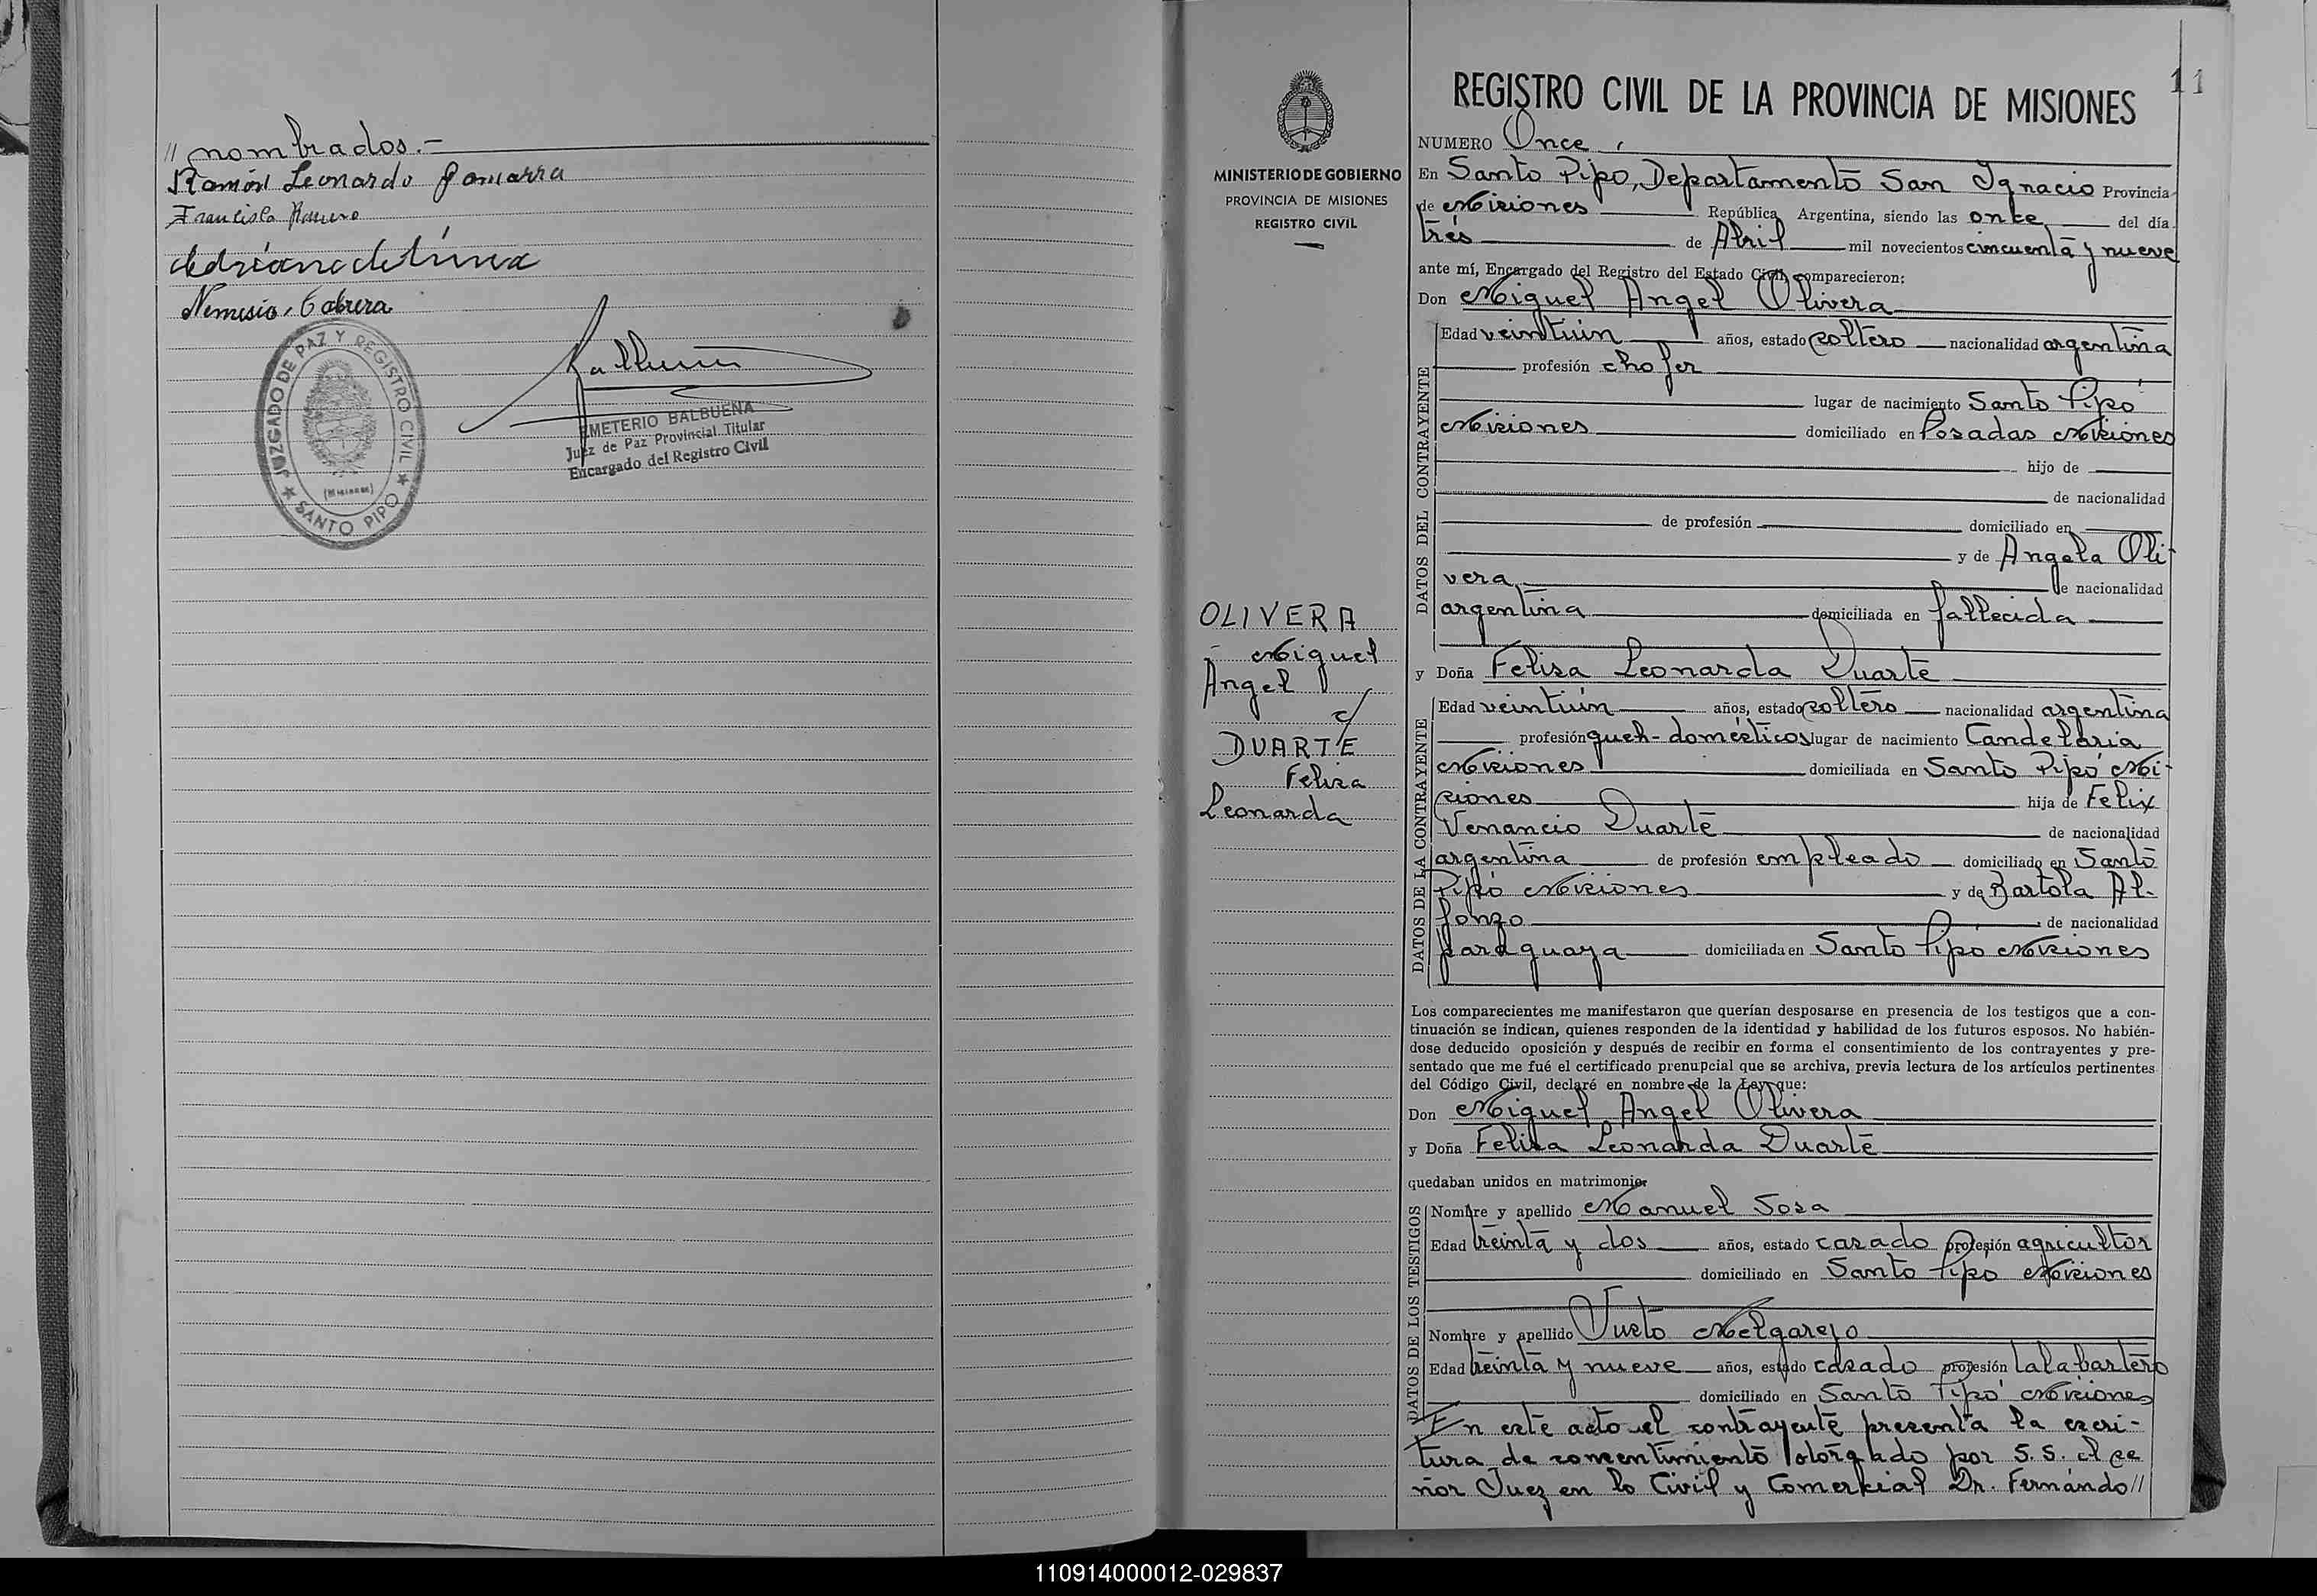 // nombrados.-
Ramón Leonardo Gamarra
Francisca
Nemesio Cabrera
JUZGADO DE PAZ Y REGISTRO CIVIL
(Misiones)
SANTO PIPO
EMETERIO BALBUENA
Juez de Paz Provincial Titular
Encargado del Registro Civil
MINISTERIO DE GOBIERNO
PROVINCIA DE MISIONES
REGISTRO CIVIL
OLIVERA
- Miguel
Angel
c/
DUARTE
Felisa
Leonarda
11
REGISTRO CIVIL DE LA PROVINCIA DE MISIONES
NUMERO Once,
En Santo Pipo, Departamento San Ignacio Provincia
de Misiones República Argentina, siendo las once del día
trés de Abril mil novecientos cincuenta y nueve
ante mí, Encargado del Registro del Estado Civil, comparecieron:
Don Miguel Angel Olivera
DATOS DEL CONTRAYENTE
Edad veintiún años, estado soltero nacionalidad argentina
profesión chofer
lugar de nacimiento Santo Pipó
Misiones domiciliado en Posadas Misiones
hijo de
de nacionalidad
de profesión domiciliado en
y de Angela Oli-
vera de nacionalidad
argentina domiciliada en fallecida
y Doña Felisa Leonarda Duarte
DATOS DE LA CONTRAYENTE
Edad veintiún años, estado soltero nacionalidad argentina
profesión queh-domésticos lugar de nacimiento Candelaria
Misiones domiciliada en Santo Pipó Mi-
siones hija de Felix
Venancio Duarte de nacionalidad
argentina de profesión empleado domiciliado en Santo
Pipó Misiones y de Bartola Al-
fonzo de nacionalidad
paraguaya domiciliada en Santo Pipó Misiones
Los comparecientes me manifestaron que querían desposarse en presencia de los testigos que a con-
tinuación se indican, quienes responden de la identidad y habilidad de los futuros esposos. No habién-
dose deducido oposición y después de recibir en forma el consentimiento de los contrayentes y pre-
sentado que me fué el certificado prenupcial que se archiva, previa lectura de los artículos pertinentes
del Código Civil, declaré en nombre de la Ley que:
Don Miguel Angel Olivera
y Doña Felisa Leonarda Duarte
quedaban unidos en matrimonio.
DATOS DE LOS TESTIGOS
Nombre y apellido Manuel Sosa
Edad treinta y dos años, estado casado profesión agricultor
domiciliado en Santo Pipo Misiones
Nombre y apellido Justo Melgarejo
Edad treinta y nueve años, estado casado profesión talabartero
domiciliado en Santo Pipó Misiones
En este acto el contrayente presenta la escri-
tura de consentimiento otorgado por S.S. el se
ñor Juez en lo Civil y Comercial Dr. Fernando//
110914000012-029837